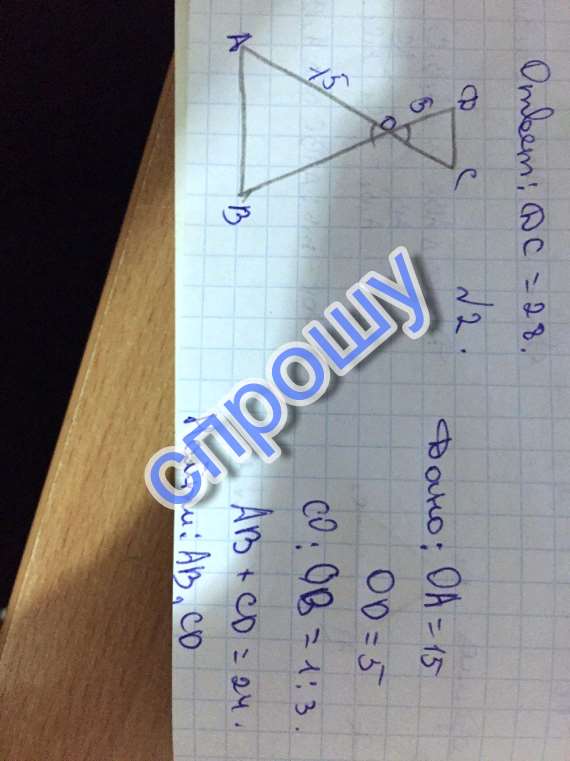 Ответ: DC = 28.
√2.
A
15
O
5
D
C
B
Дано: OA = 15
OD = 5
CO : OB = 1 : 3.
AB + CD = 24.
AB, CD
спрошу